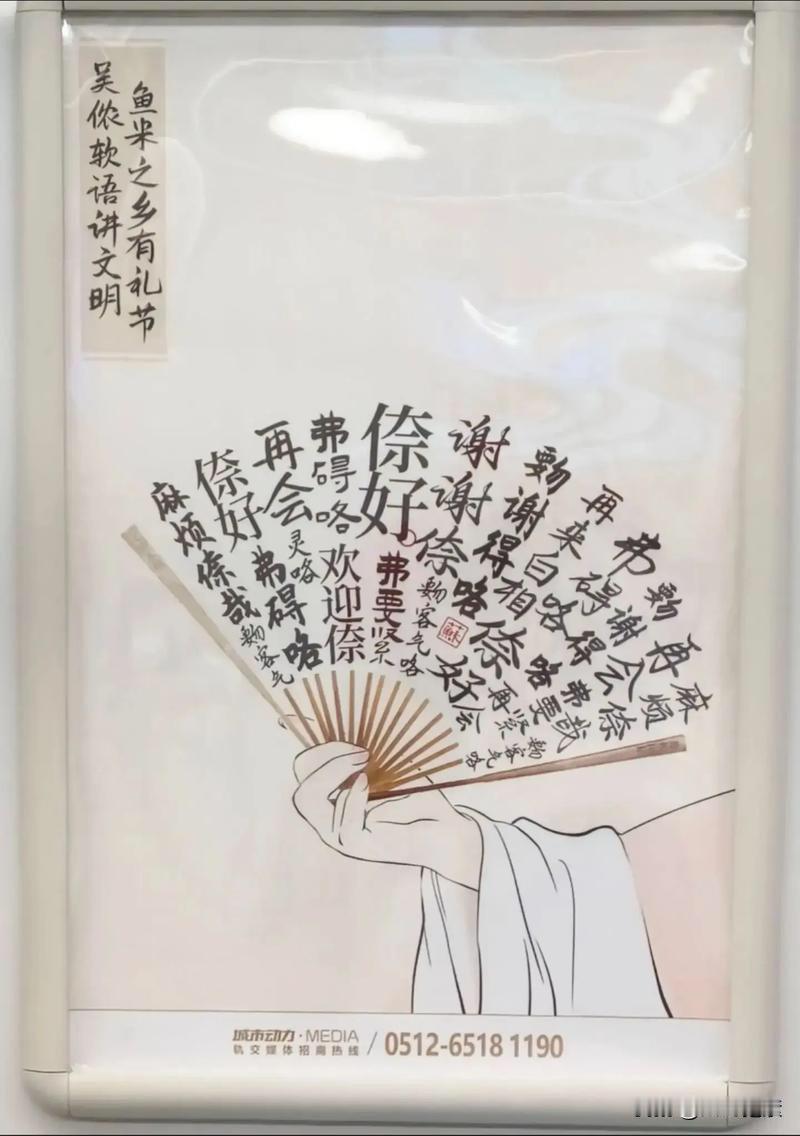 鱼米之乡有礼节
吴侬软语讲文明
麻烦倷哉
覅客气
倷好
弗碍咯
再会
灵咯
弗碍咯
欢迎倷
倷好
弗要紧
谢谢倷
覅客气咯
蘇
覅谢得咯
倷好
再来白相
再会
弗碍咯
弗要紧
覅谢得咯
再会
麻烦倷哉
覅客气咯
城市动力·MEDIA
轨交媒体招商热线 / 0512-6518 1190